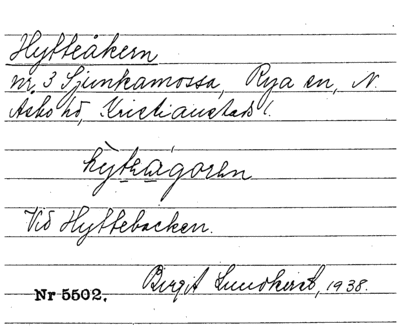 Hytteåkern
nr. 3 Sjunkamossa, Rya sn, N.
Åsbo hd, Kristianstads l.
hỳtẹågorẹn
Vid Hyttebacken.
Nr 5502. Birgit Lundkvist, 1938.